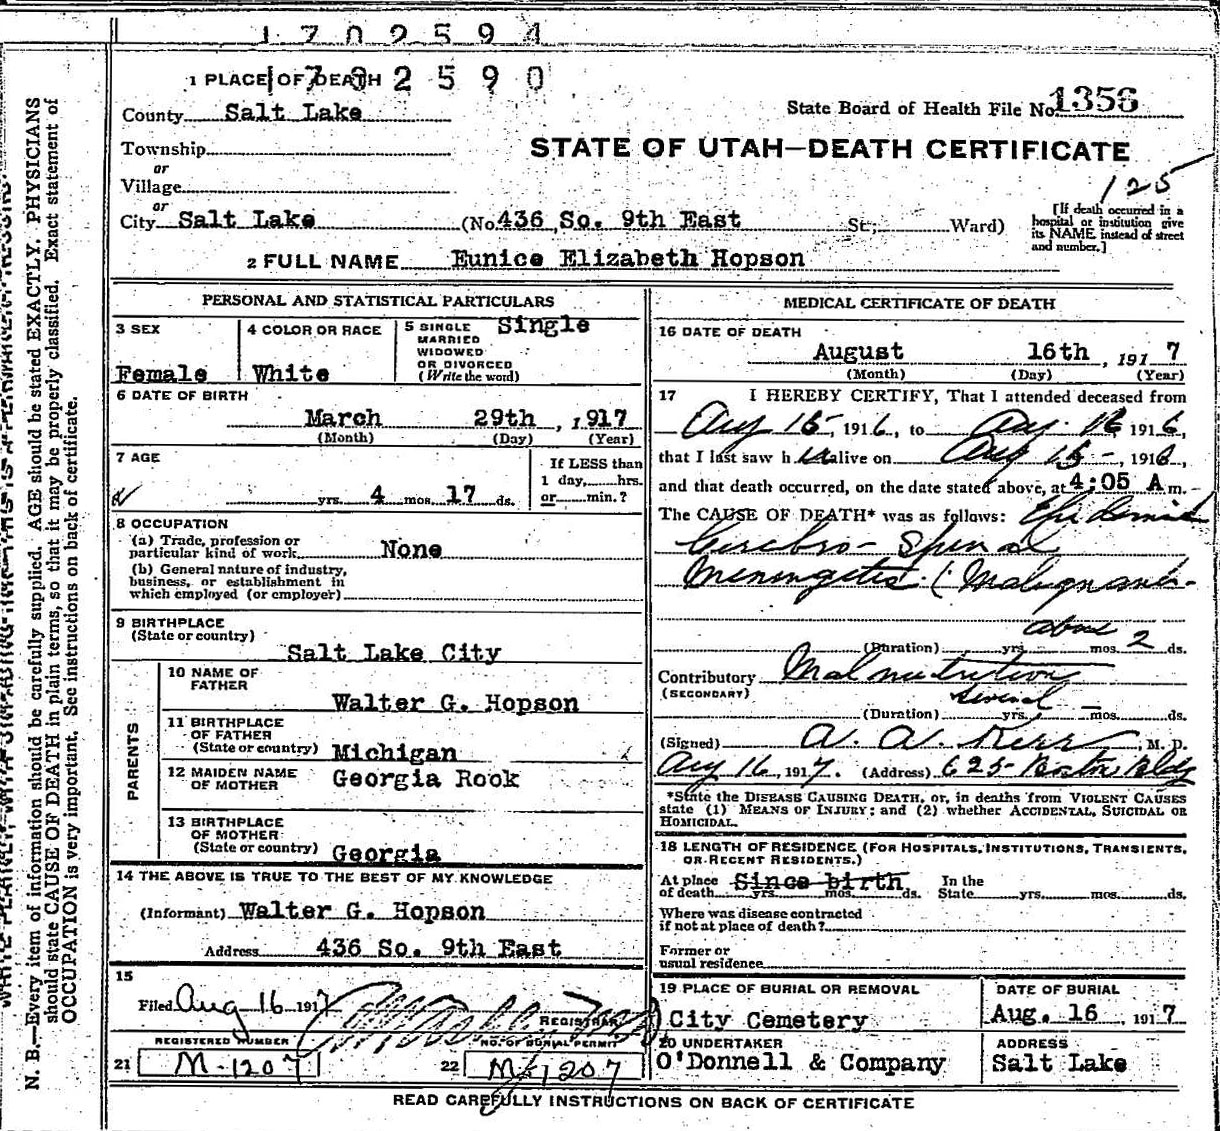 1702594
1 PLACE OF DEATH 1702590
County Salt Lake
State Board of Health File No. 1356
Township
or
Village
or
STATE OF UTAH—DEATH CERTIFICATE
125
City Salt Lake (No. 436 So. 9th East St; Ward)
[If death occurred in a
hospital or institution give
its NAME instead of street
and number.]
2 FULL NAME Eunice Elizabeth Hopson
PERSONAL AND STATISTICAL PARTICULARS
3 SEX
Female
4 COLOR OR RACE
White
5 SINGLE
MARRIED
WIDOWED
OR DIVORCED
(Write the word)
Single
6 DATE OF BIRTH
March 29th, 1917
(Month) (Day) (Year)
7 AGE
yrs. 4 mos. 17 ds.
If LESS than
1 day, hrs.
or min.?
8 OCCUPATION
(a) Trade, profession or
particular kind of work None
(b) General nature of industry,
business, or establishment in
which employed (or employer)
9 BIRTHPLACE
(State or country)
Salt Lake City
PARENTS
10 NAME OF
FATHER
Walter G. Hopson
11 BIRTHPLACE
OF FATHER
(State or country) Michigan
12 MAIDEN NAME
OF MOTHER
Georgia Rook
13 BIRTHPLACE
OF MOTHER
(State or country) Georgia
14 THE ABOVE IS TRUE TO THE BEST OF MY KNOWLEDGE
(Informant) Walter G. Hopson
Address 436 So. 9th East
15
Filed Aug 16 1917
REGISTRAR
REGISTERED NUMBER
21 M-1207
NO. OF BURIAL PERMIT
22 M-1207
MEDICAL CERTIFICATE OF DEATH
16 DATE OF DEATH
August 16th, 1917
(Month) (Day) (Year)
17 I HEREBY CERTIFY, That I attended deceased from
Aug 15, 1916, to Aug. 16 1916,
that I last saw her alive on Aug 15, 1916,
and that death occurred, on the date stated above, at 4:05 A m.
The CAUSE OF DEATH* was as follows: Epidemic
Cerebro-Spinal
Meningitis (Malignant
about
(Duration) yrs. mos. 2 ds.
Contributory Malnutrition
(SECONDARY)
several
(Duration) yrs. mos. ds.
(Signed) A. A. Kerr, M. D.
Aug 16, 1917. (Address) 625 Boston Bldg
*State the DISEASE CAUSING DEATH, or, in deaths from VIOLENT CAUSES
state (1) MEANS OF INJURY; and (2) whether ACCIDENTAL, SUICIDAL OR
HOMICIDAL.
18 LENGTH OF RESIDENCE (FOR HOSPITALS, INSTITUTIONS, TRANSIENTS,
OR RECENT RESIDENTS.)
At place
of death Since birth yrs. mos. ds.
In the
State yrs. mos. ds.
Where was disease contracted
if not at place of death?
Former or
usual residence
19 PLACE OF BURIAL OR REMOVAL
City Cemetery
DATE OF BURIAL
Aug. 16, 1917
20 UNDERTAKER
O'Donnell & Company
ADDRESS
Salt Lake
READ CAREFULLY INSTRUCTIONS ON BACK OF CERTIFICATE
N. B.—Every item of information should be carefully supplied. AGE should be stated EXACTLY. PHYSICIANS
should state CAUSE OF DEATH in plain terms, so that it may be properly classified. Exact statement of
OCCUPATION is very important. See instructions on back of certificate.